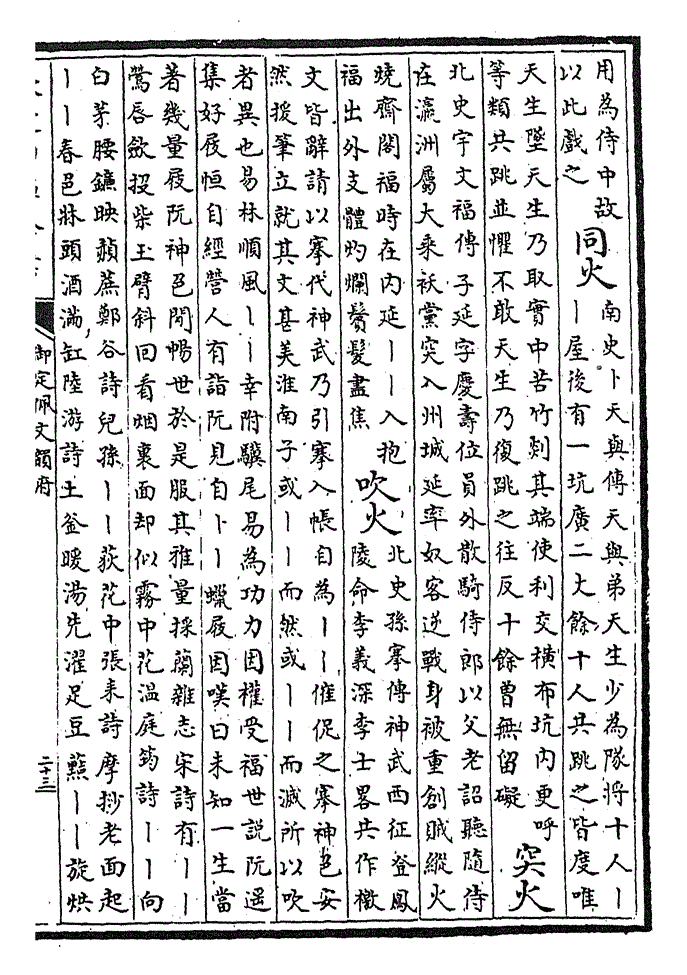 用為侍中故
以此戲之
同火
南史卜天與傳天與弟天生少為隊將十人｜
｜屋後有一坑廣二丈餘十人共跳之皆度唯
天生墜天生乃取實中苦竹剡其端使利交橫布坑內更呼
等類共跳並懼不敢天生乃復跳之往反十餘曽無留礙
突火
北史宇文福傳子延字慶壽位員外散騎侍郎以父老詔聽隨侍
在瀛洲屬大乘袄黨突入州城延率奴客逆戰身被重創賊縱火
燒齋閣福時在內延｜｜入抱
福出外支體灼爛鬢髮盡焦
吹火
北史孫搴傳神武西征登鳳
陵命李義深李士畧共作檄
文皆辭請以搴代神武乃引搴入帳自為｜｜催促之搴神色安
然援筆立就其文甚美淮南子或｜｜而然或｜｜而滅所以吹
者異也易林順風｜｜牽附驥尾易為功力因權受福世說阮遥
集好屐恒自經營人有詣阮見自｜｜蠟屐因嘆曰未知一生當
著幾量屐阮神色閒暢世於是服其雅量採蘭雜志宋詩有｜｜
鶯唇斂投柴玉臂斜回看烟裏面却似霧中花温庭筠詩｜｜向
白茅腰鐮映赬蔗鄭谷詩兒孫｜｜荻花中張耒詩摩挲老面起
｜｜春色牀頭酒滿缸陸游詩土釜暖湯先濯足豆｜｜旋烘
御定佩文韻府
二十三